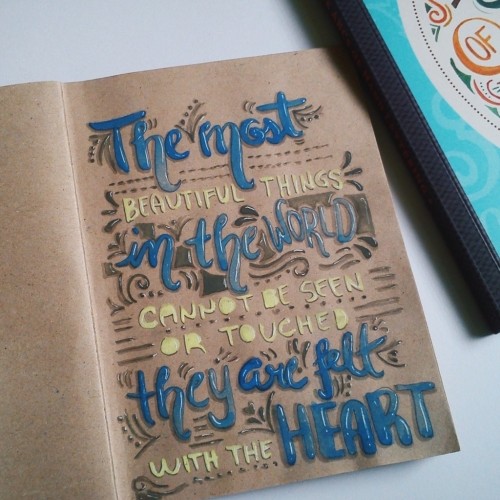 The most
BEAUTIFUL THINGS
in the WORLD
CANNOT BE SEEN
OR TOUCHED
they are felt
WITH THE HEART
OF